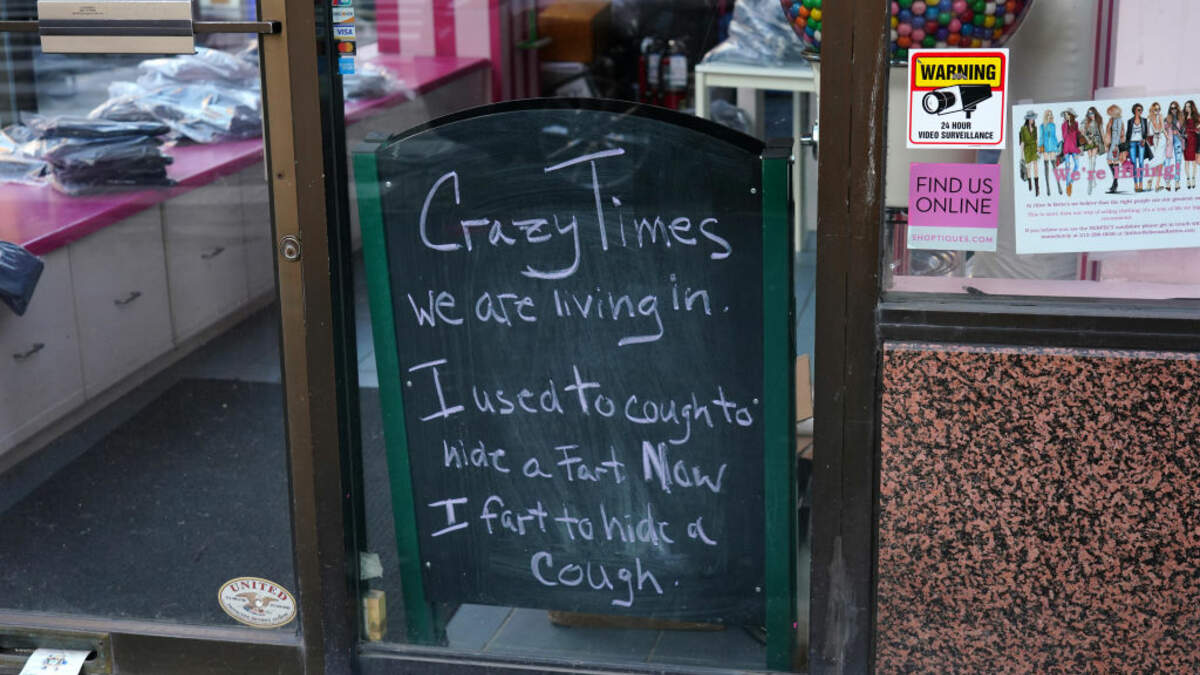 VISA
Crazy Times
we are living in.
I used to cough to
hide a Fart Now
I fart to hide a
Cough.
WARNING
24 HOUR
VIDEO SURVEILLANCE
FIND US
ONLINE
SHOPTIQUES.COM
We're Hiring!
UNITED